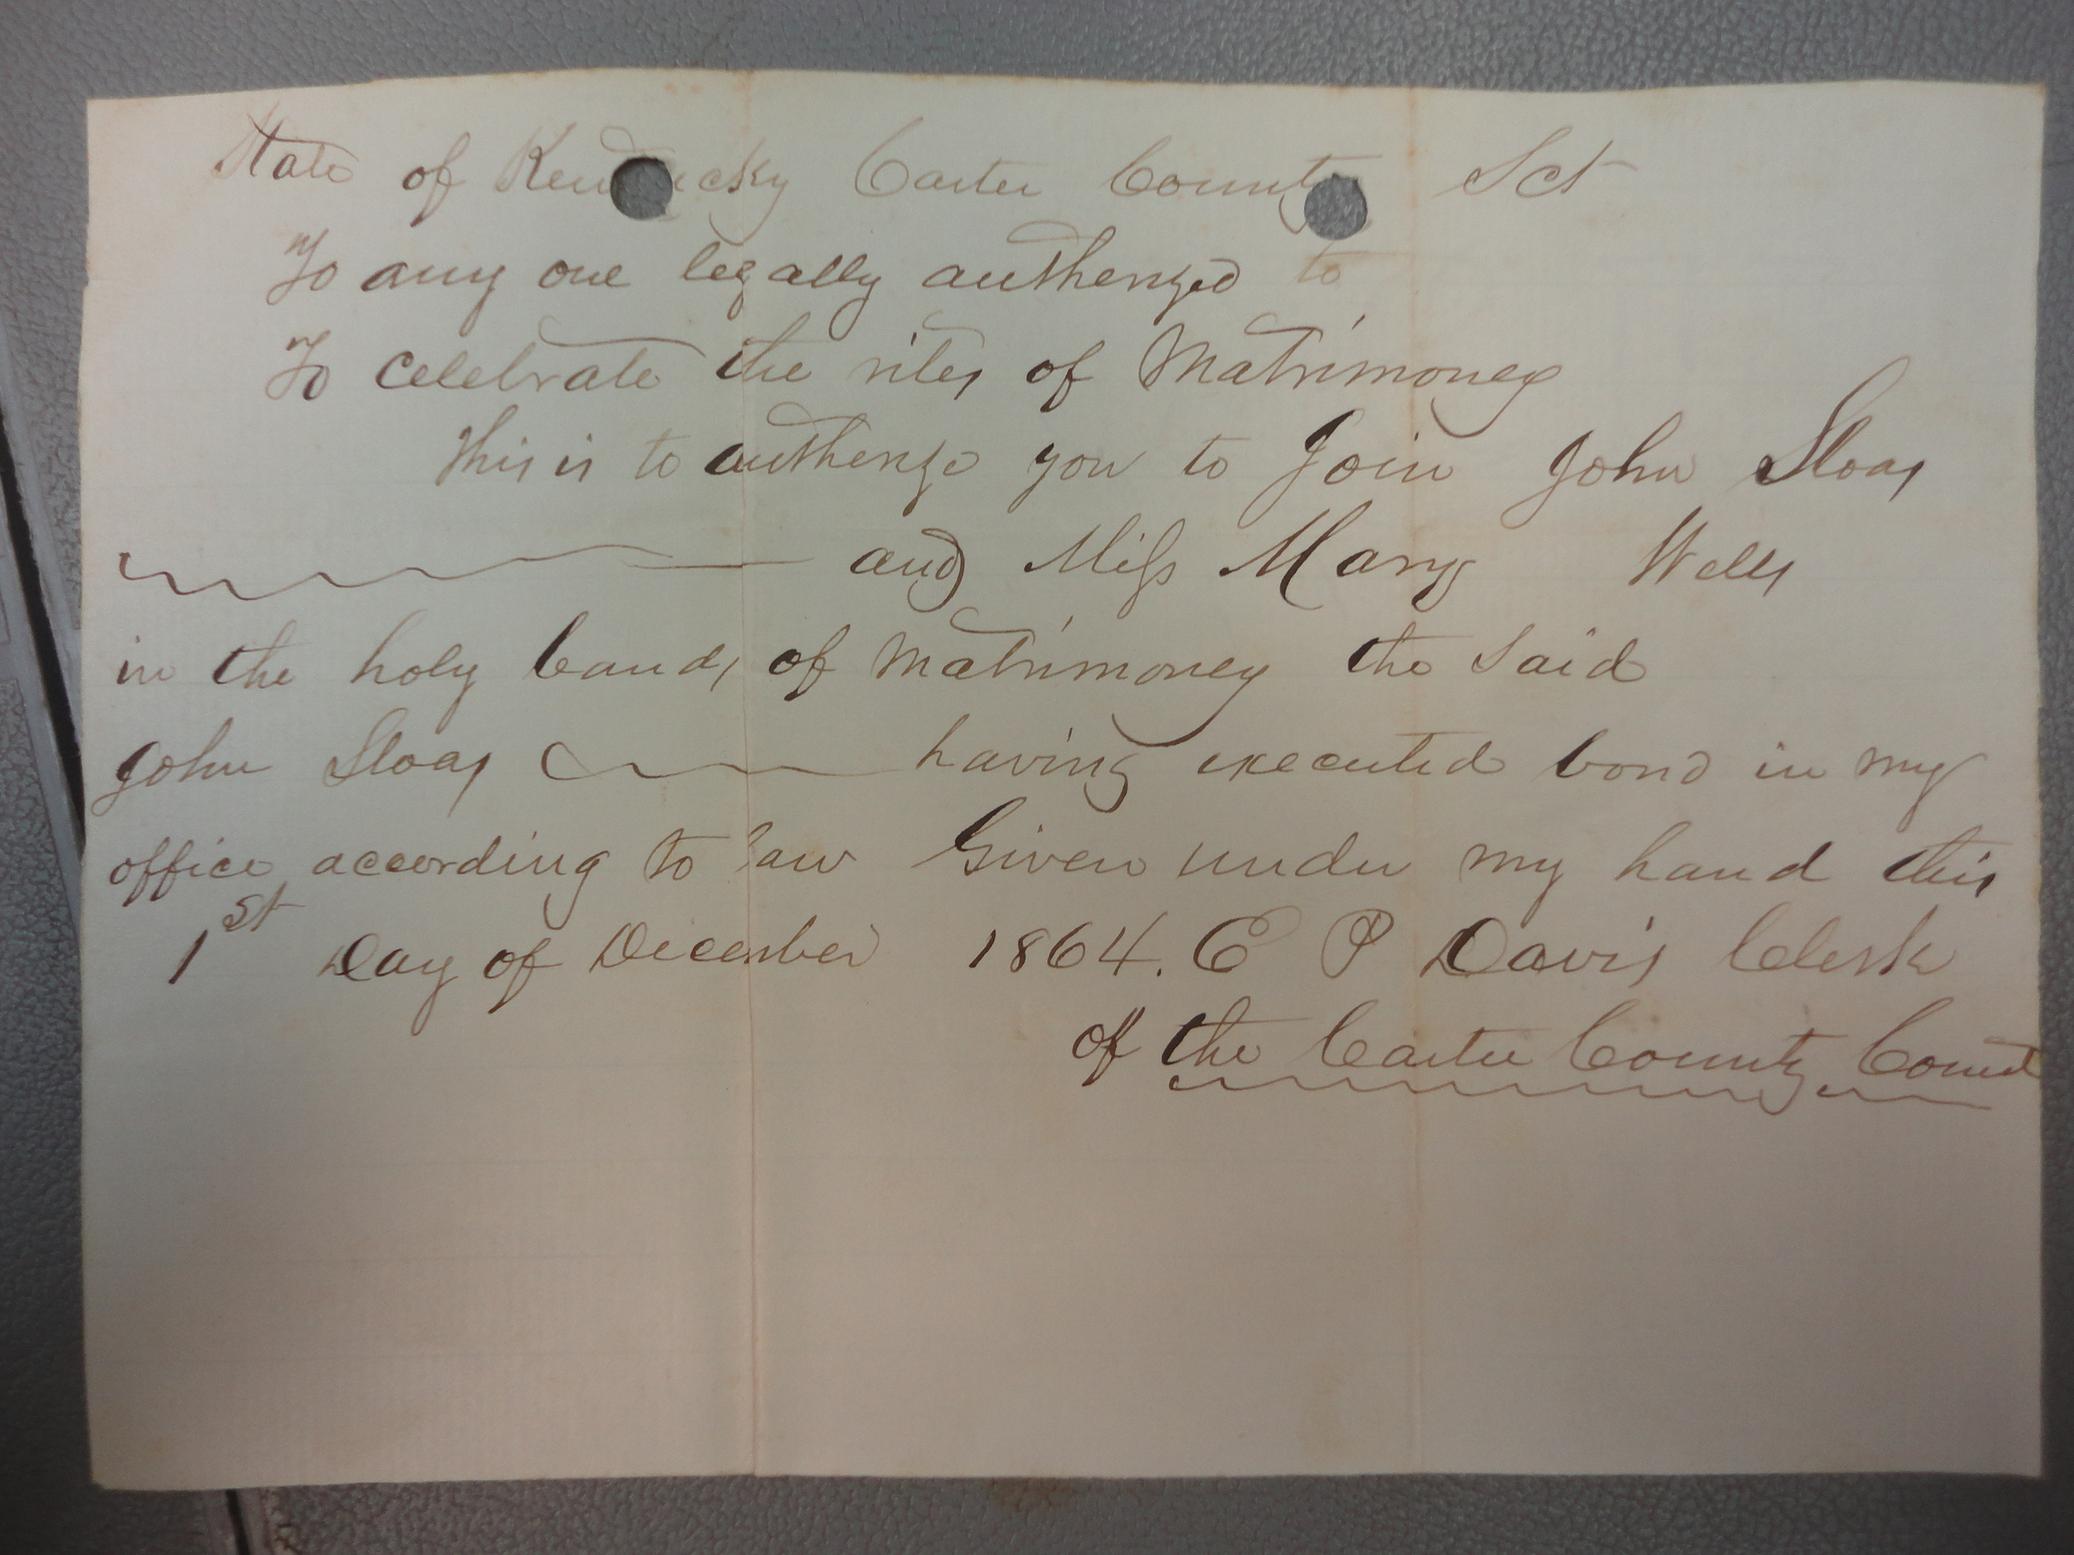 State of Kentucky Carter County Sct
To any one legally autherized to
To celebrate the rites of Matrimoney
This is to autherize you to Join John Sloas
and Miss Mary Wells
in the holy bands of Matrimoney the Said
John Sloas having executed bond in my
office according to law Given under my hand this
1st Day of December 1864. E P Davis Clerk
of the Carter County Court